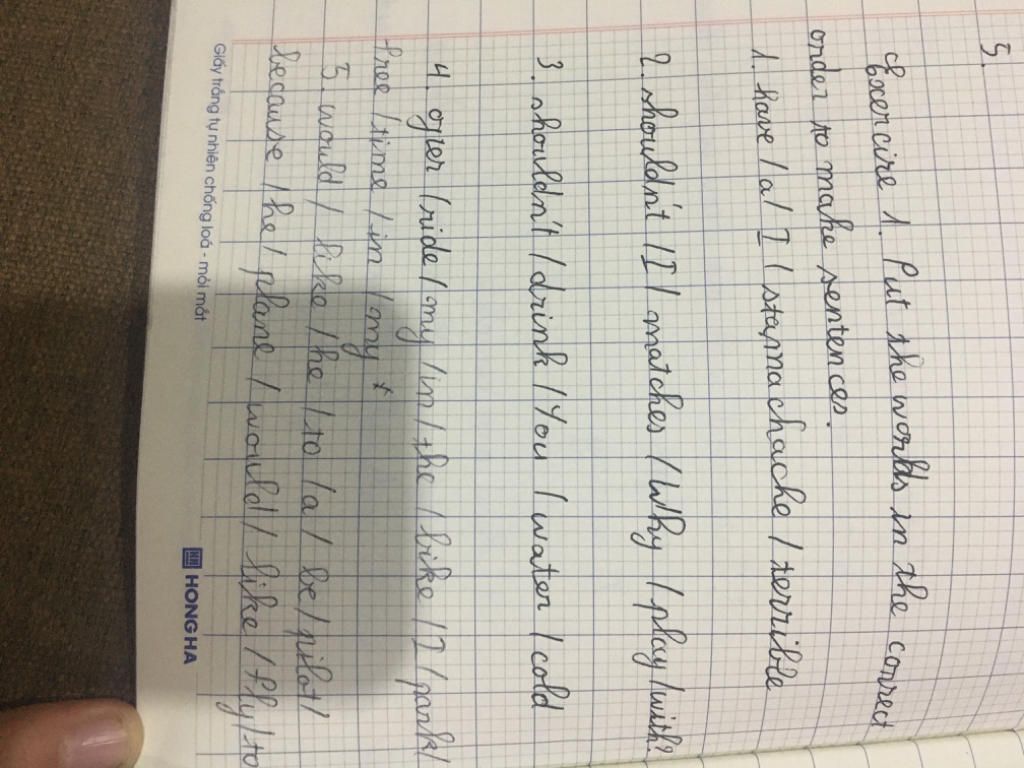 5.
Exercire 1. Put the worlds in the correct
order to make sentences.
1. have / a / I / stamachache / terrible
2. shouldn't / I / matches / Why / play / with?
3. shouldn't / drink / You / water / cold
4. ofer / ride / my / in / the / bike / I / park /
free / time / in / my
5. would / like / he / to / a / be / pilot /
because / he / plane / would / like / fly / to
Giấy trắng tự nhiên chống loá - mỏi mắt
HONG HA